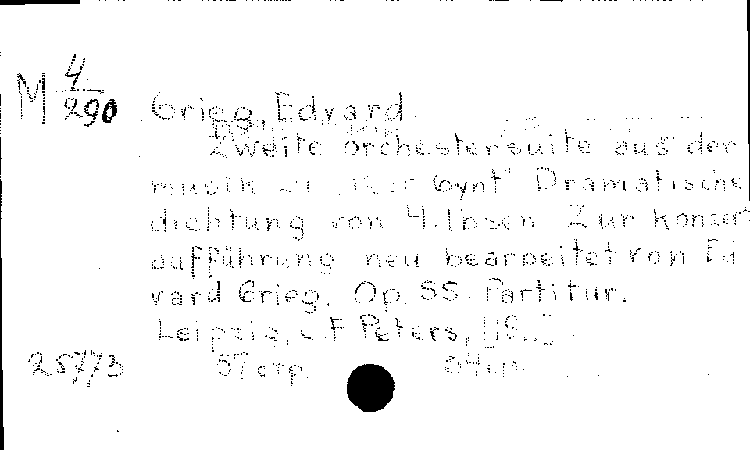 M 4/290 Grieg, Edvard
Zweite orchestersuite aus der
musik zu "Peer Gynt" Dramatische
dichtung von H. Ibsen Zur konzert
aufführung neu bearbeitet von Ed
vard Grieg. Op. 55. Partitur.
Leipzig, C. F. Peters,
25773 57 стр.